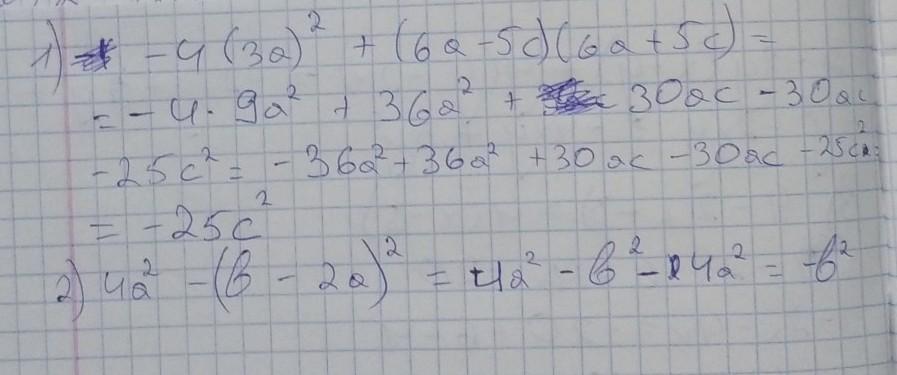 1) -4(3a)² + (6a - 5c)(6a + 5c) =
= -4 · 9a² + 36a² + 30ac - 30ac
-25c² = -36a² + 36a² + 30ac - 30ac - 25c² =
= -25c²
2) 4a² - (b - 2a)² = 4a² - b² - 4a² = -b²